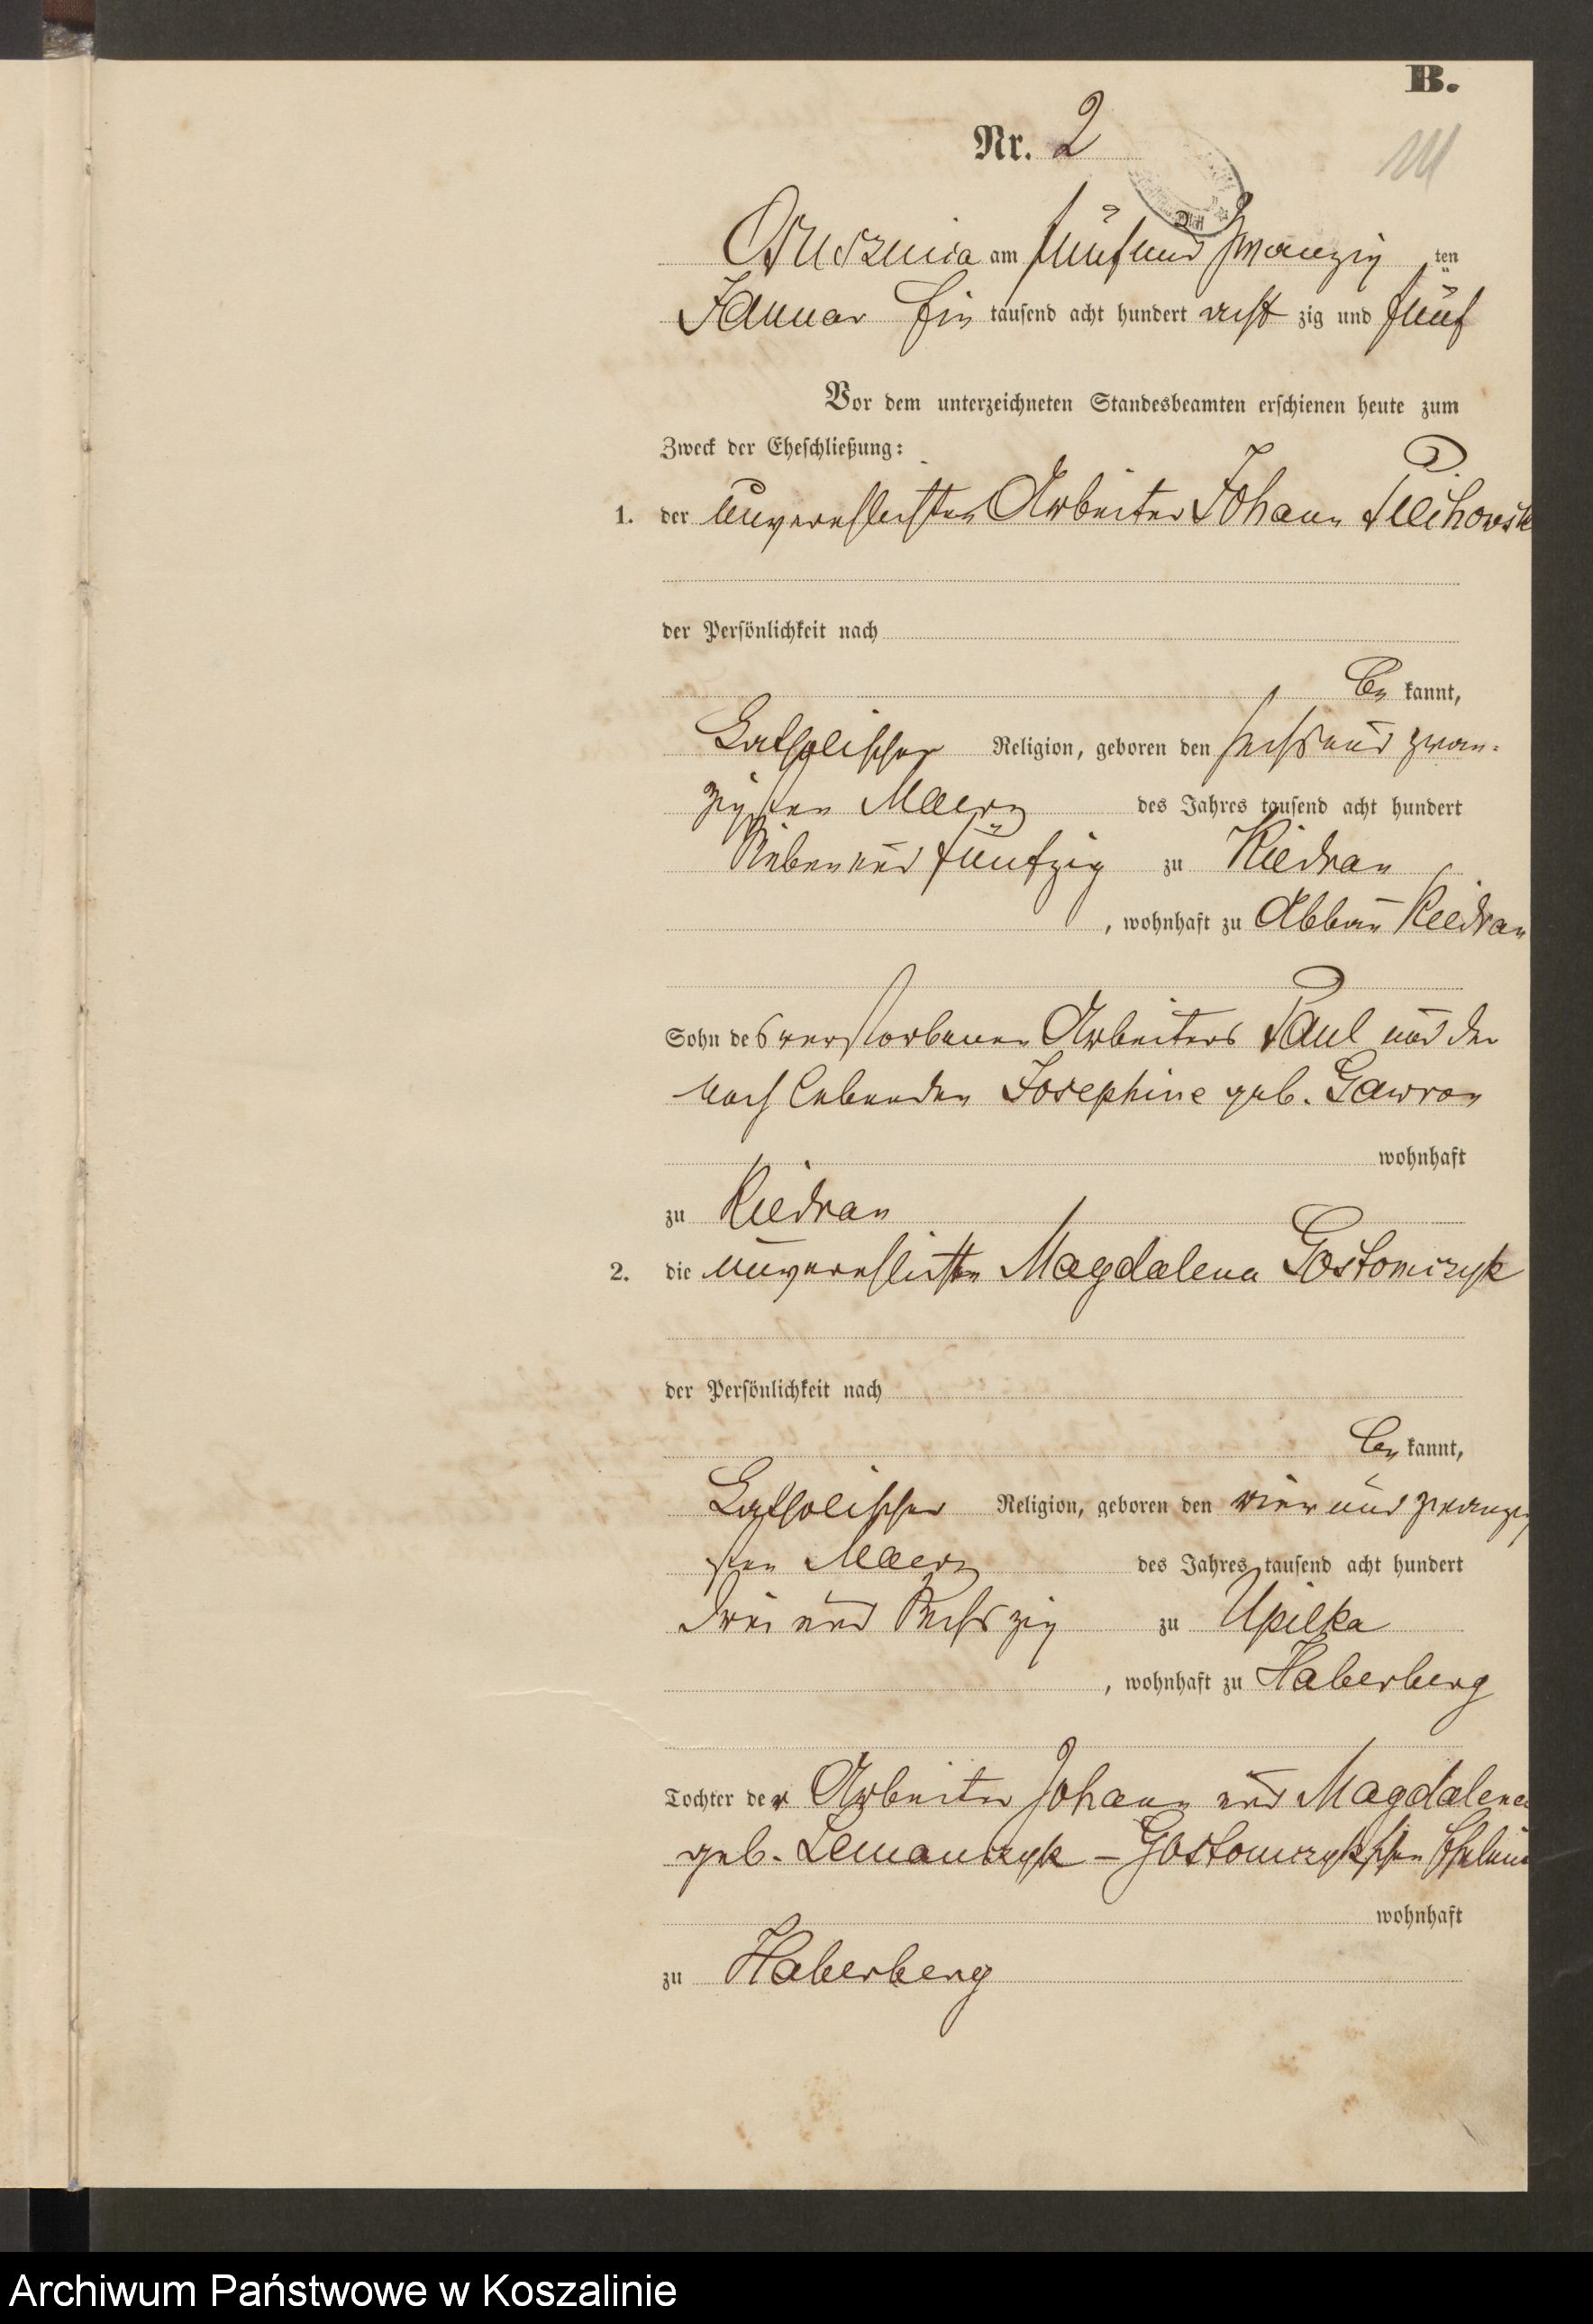 B.
Nr. 2
111
Osusznica am fünf und zwanzig ten
Januar Ein tausend acht hundert acht zig und fünf
Vor dem unterzeichneten Standesbeamten erschienen heute zum
Zweck der Eheschließung:
1. der unverehlichten Arbeiter Johann
der Persönlichkeit nach
be kannt,
Katholischer Religion, geboren den sechs und zwan-
zigsten Maerz des Jahres tausend acht hundert
sieben und fünfzig zu Kiedrau
, wohnhaft zu Abbau Kiedrau
Sohn des verstorbenen Arbeiters Paul und der
noch lebenden Josephine geb. Gawron
wohnhaft
zu Kiedrau
2. die unverehlichte Magdalena Gostomczyk
der Persönlichkeit nach
be kannt,
Katholischer Religion, geboren den vier und zwanzig
sten Maerz des Jahres tausend acht hundert
drei und sechszig zu Upilka
, wohnhaft zu Haberberg
Tochter der Arbeiter Johann und Magdalena
geb. Lemanczyk - Gostomczykschen Eheleute
wohnhaft
zu Haberberg
Archiwum Państwowe w Koszalinie